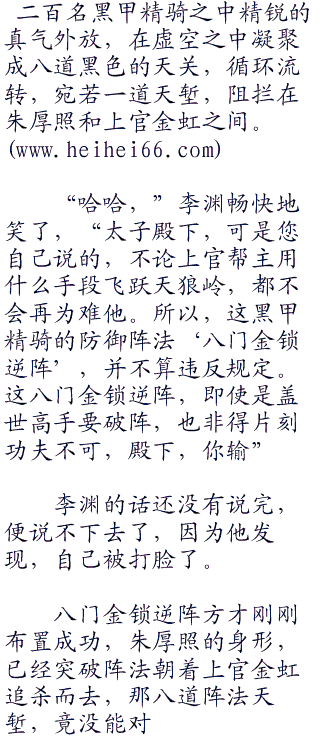 二百名黑甲精骑之中精锐的
真气外放，在虚空之中凝聚
成八道黑色的天关，循环流
转，宛若一道天堑，阻拦在
朱厚照和上官金虹之间。
(www.heihei66.com)
“哈哈，”李渊畅快地
笑了，“太子殿下，可是您
自己说的，不论上官帮主用
什么手段飞跃天狼岭，都不
会再为难他。所以，这黑甲
精骑的防御阵法‘八门金锁
逆阵’，并不算违反规定。
这八门金锁逆阵，即使是盖
世高手要破阵，也非得片刻
功夫不可，殿下，你输”
李渊的话还没有说完，
便说不下去了，因为他发
现，自己被打脸了。
八门金锁逆阵方才刚刚
布置成功，朱厚照的身形，
已经突破阵法朝着上官金虹
追杀而去，那八道阵法天
堑，竟没能对